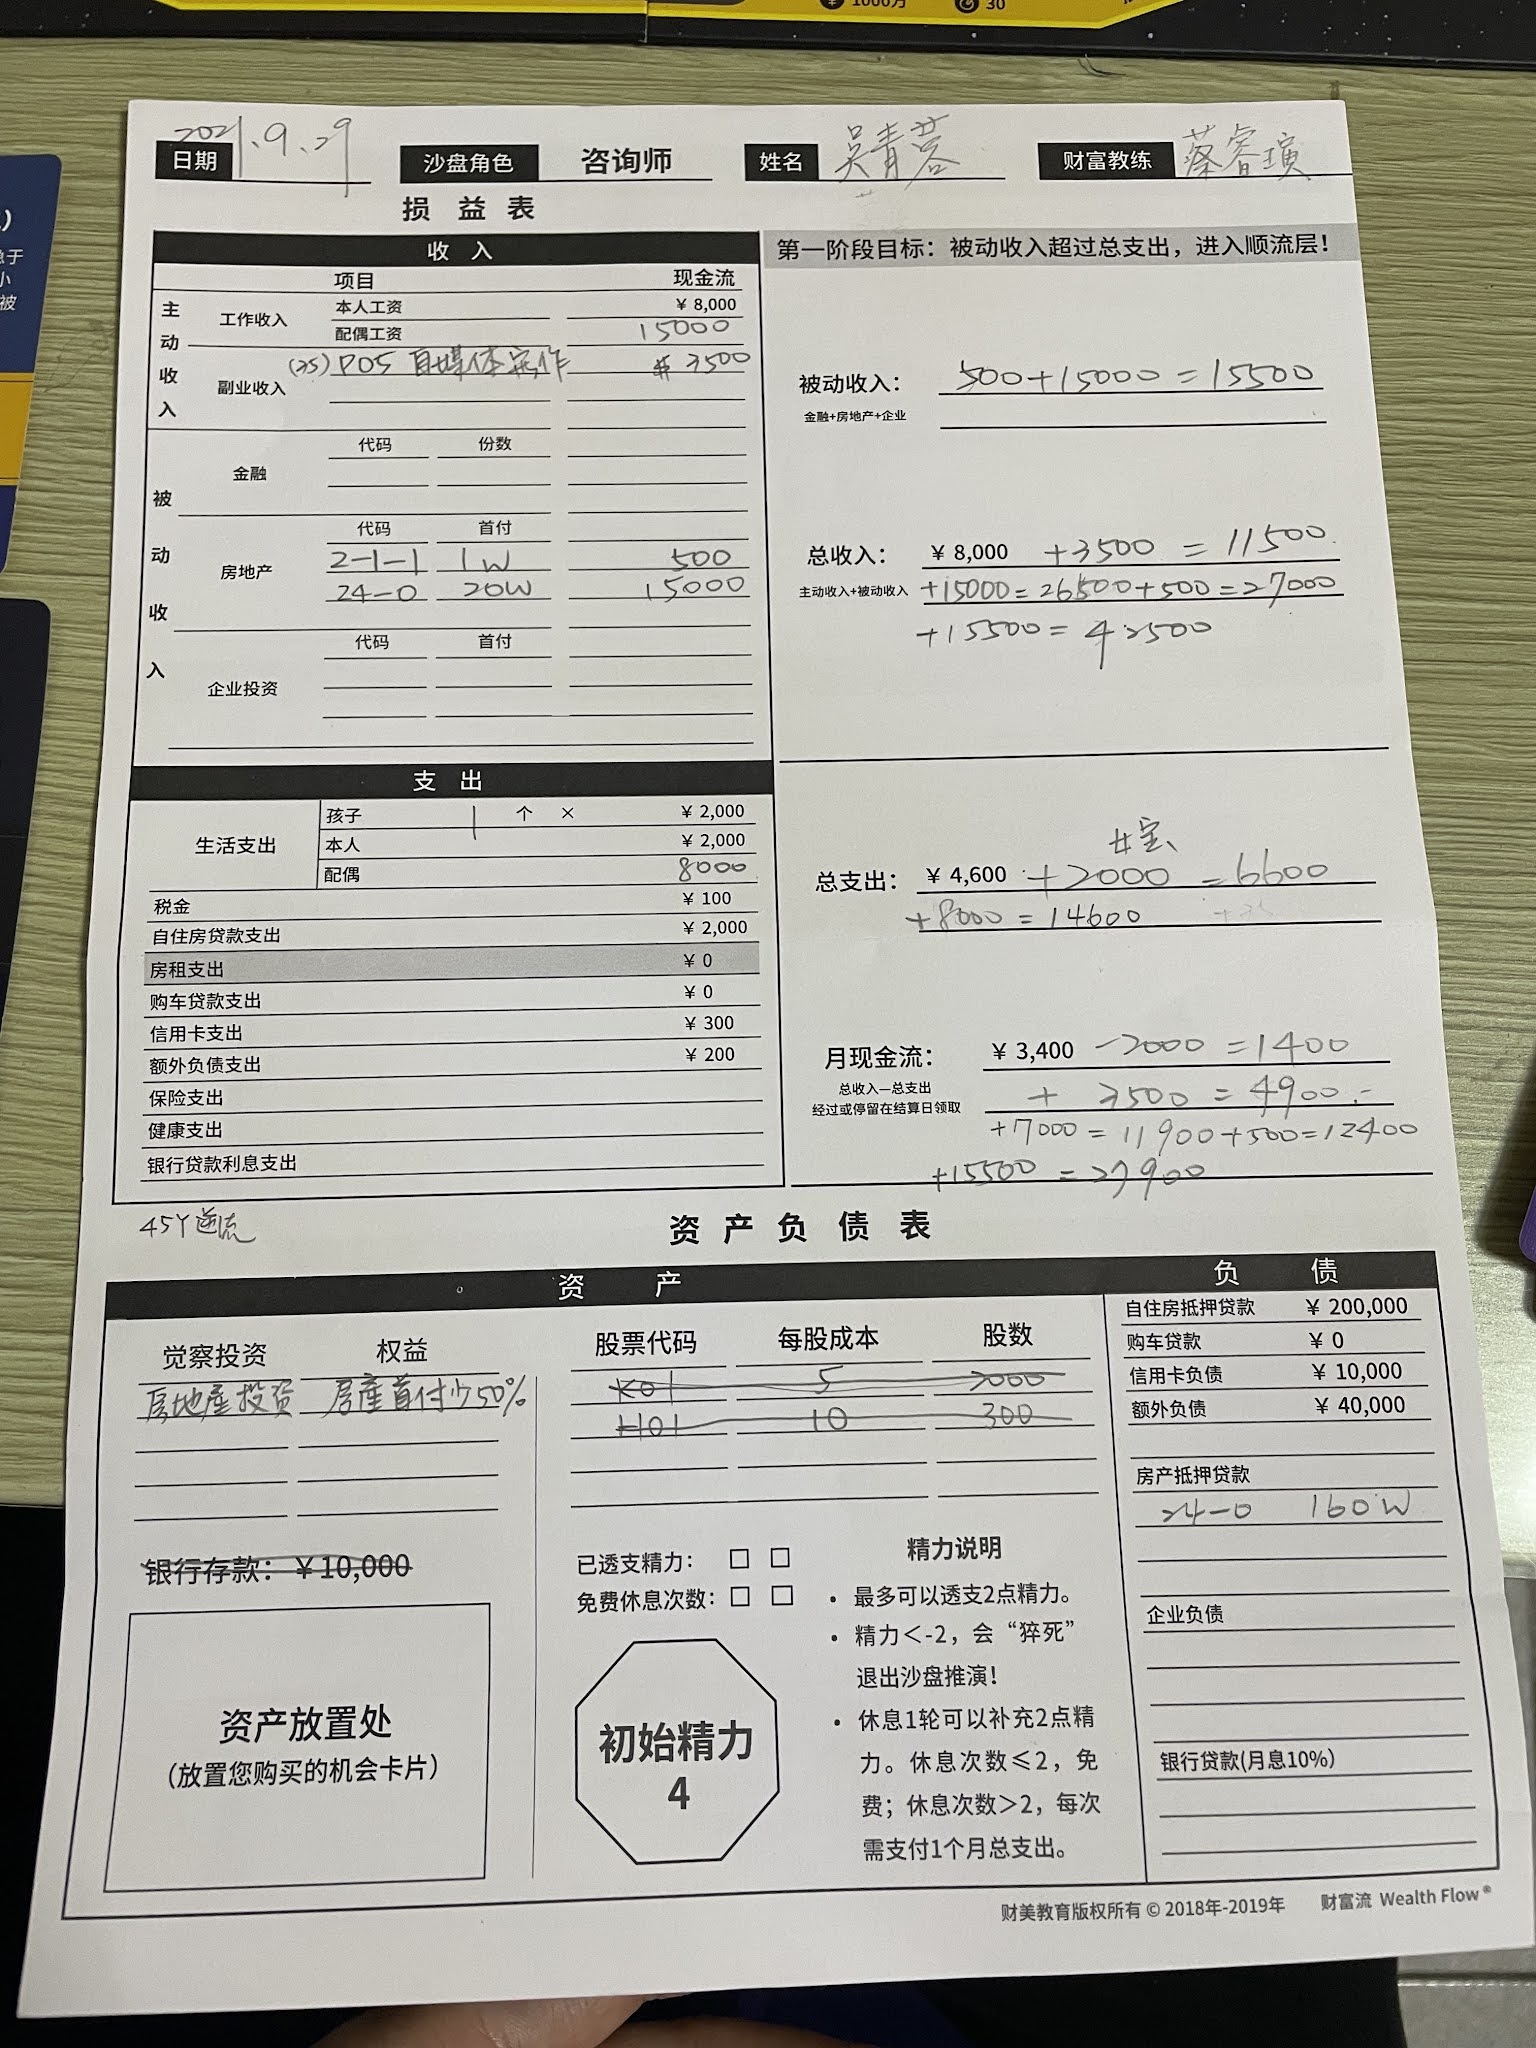 1000万 30
2021.9.29
日期 沙盘角色 咨询师 姓名 吴青蓉 财富教练 蔡睿瑱
损 益 表
收 入
项目 现金流
主动收入
工作收入 本人工资 ￥8,000
配偶工资 15000
副业收入 (35) P05 自媒体寫作 # 3500
被动收入
金融 代码 份数
房地产 代码 首付
2-1-1 1W 500
24-0 20W 15000
企业投资 代码 首付
第一阶段目标：被动收入超过总支出，进入顺流层！
被动收入： 500+15000=15500
金融+房地产+企业
总收入： ￥8,000 +3500 = 11500
主动收入+被动收入 +15000=26500+500=27000
+15500= 42500
支 出
生活支出 孩子 1 个 × ￥2,000
本人 ￥2,000
配偶 8000
税金 ￥100
自住房贷款支出 ￥2,000
房租支出 ￥0
购车贷款支出 ￥0
信用卡支出 ￥300
额外负债支出 ￥200
保险支出
健康支出
银行贷款利息支出
女宝
总支出： ￥4,600 +2000 =6600
+8000 = 14600
月现金流： ￥3,400 -2000 =1400
总收入—总支出
经过或停留在结算日领取
+ 3500 = 4900.-
+7000 = 11900+500=12400
+15500 =27900
45Y逆流
资 产 负 债 表
资 产
觉察投资 权益
房地產投资 房產首付少50%
银行存款：￥10,000
资产放置处
（放置您购买的机会卡片）
股票代码 每股成本 股数
K01 5 2000
H01 10 300
已透支精力： □ □
免费休息次数：□ □
初始精力
4
精力说明
• 最多可以透支2点精力。
• 精力＜-2，会“猝死”
退出沙盘推演！
• 休息1轮可以补充2点精
力。休息次数≤2，免
费；休息次数＞2，每次
需支付1个月总支出。
负 债
自住房抵押贷款 ￥200,000
购车贷款 ￥0
信用卡负债 ￥10,000
额外负债 ￥40,000
房产抵押贷款
24-0 160W
企业负债
银行贷款(月息10%)
财美教育版权所有 © 2018年-2019年 财富流 Wealth Flow®